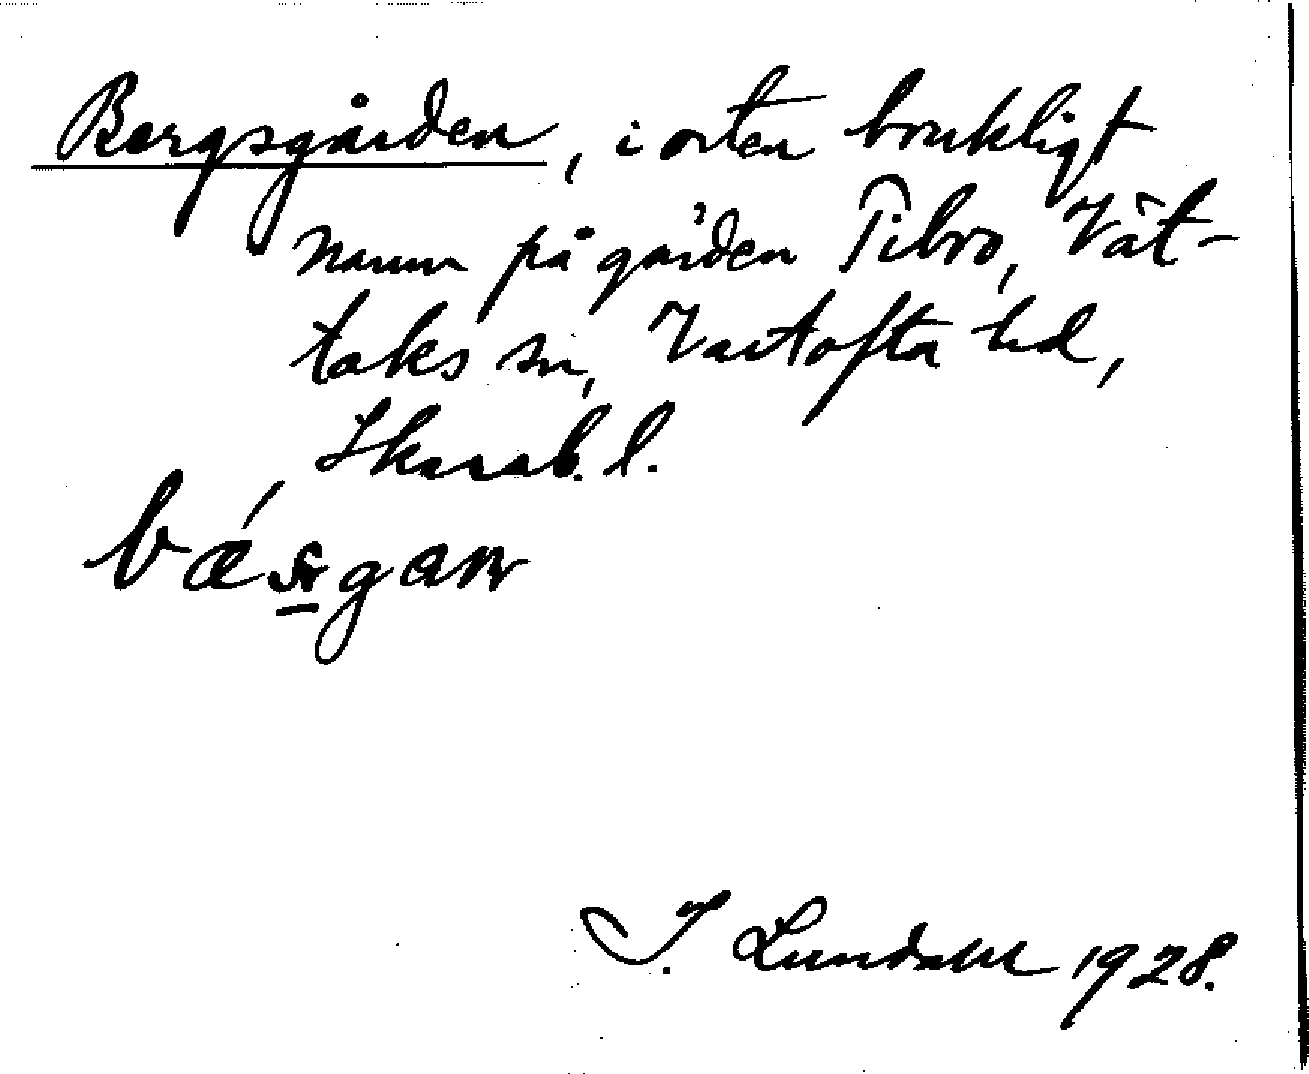 Bergsgården, i orten brukligt
namn på gården Tibro, Vät-
taks sn, Vartofta hd,
Skarab. l.
bæ´srgaɴ
J. Lundahl 1928.